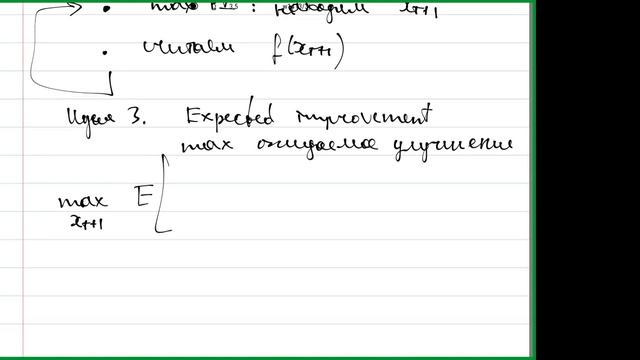 • max : находим xₜ₊₁
• считаем f(xₜ₊₁)
Идея 3. Expected improvement
max ожидаемое улучшение
max E [
xₜ₊₁